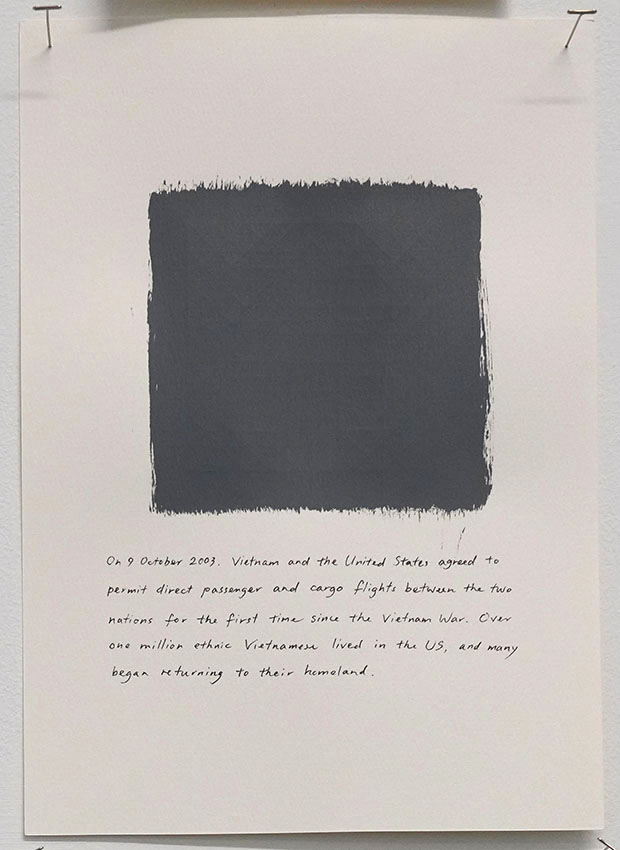 On 9 October 2003, Vietnam and the United States agreed to
permit direct passenger and cargo flights between the two
nations for the first time since the Vietnam War. Over
one million ethnic Vietnamese lived in the US, and many
began returning to their homeland.